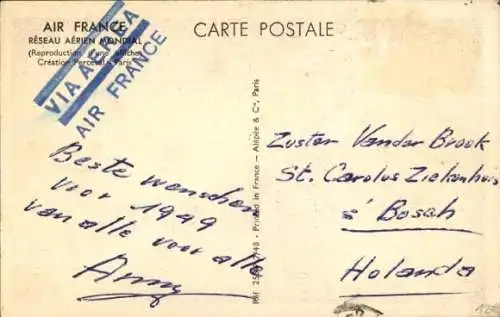 AIR FRANCE
RÉSEAU AÉRIEN MONDIAL
(Reproduction d'une affiche)
Création Perceval - Paris
CARTE POSTALE
VIA AEREA
AIR FRANCE
Beste wenschen
voor 1949
van alle voor alle
Anny
Printed in France — Alépée & Cº, Paris
Zuster Vander Broek
St. Carolus Ziekenhuis
s' Bosch
Holanda